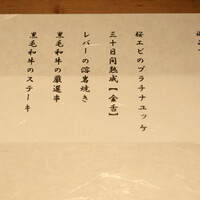 桜エビのプラチナユッケ
三十日間熟成【金舌】
レバーの溶岩焼き
黒毛和牛の厳選串
黒毛和牛のステーキ